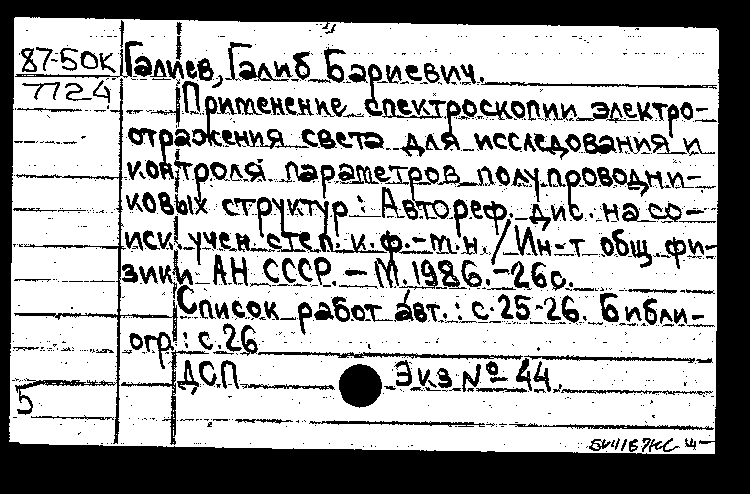 87-50К Галиев, Галиб Бариевич.
7724 Применение спектроскопии электро-
отражения света для исследования и
контроля параметров полупроводни-
ковых структур : Автореф. дис. на со-
иск. учен. степ. к. ф.-т. н. / Ин-т общ. фи-
зики АН СССР. – М. 1986. – 26с.
Список работ авт. : с. 25-26. Библи-
огр. : с. 26
ДСП Экз № 44.
5